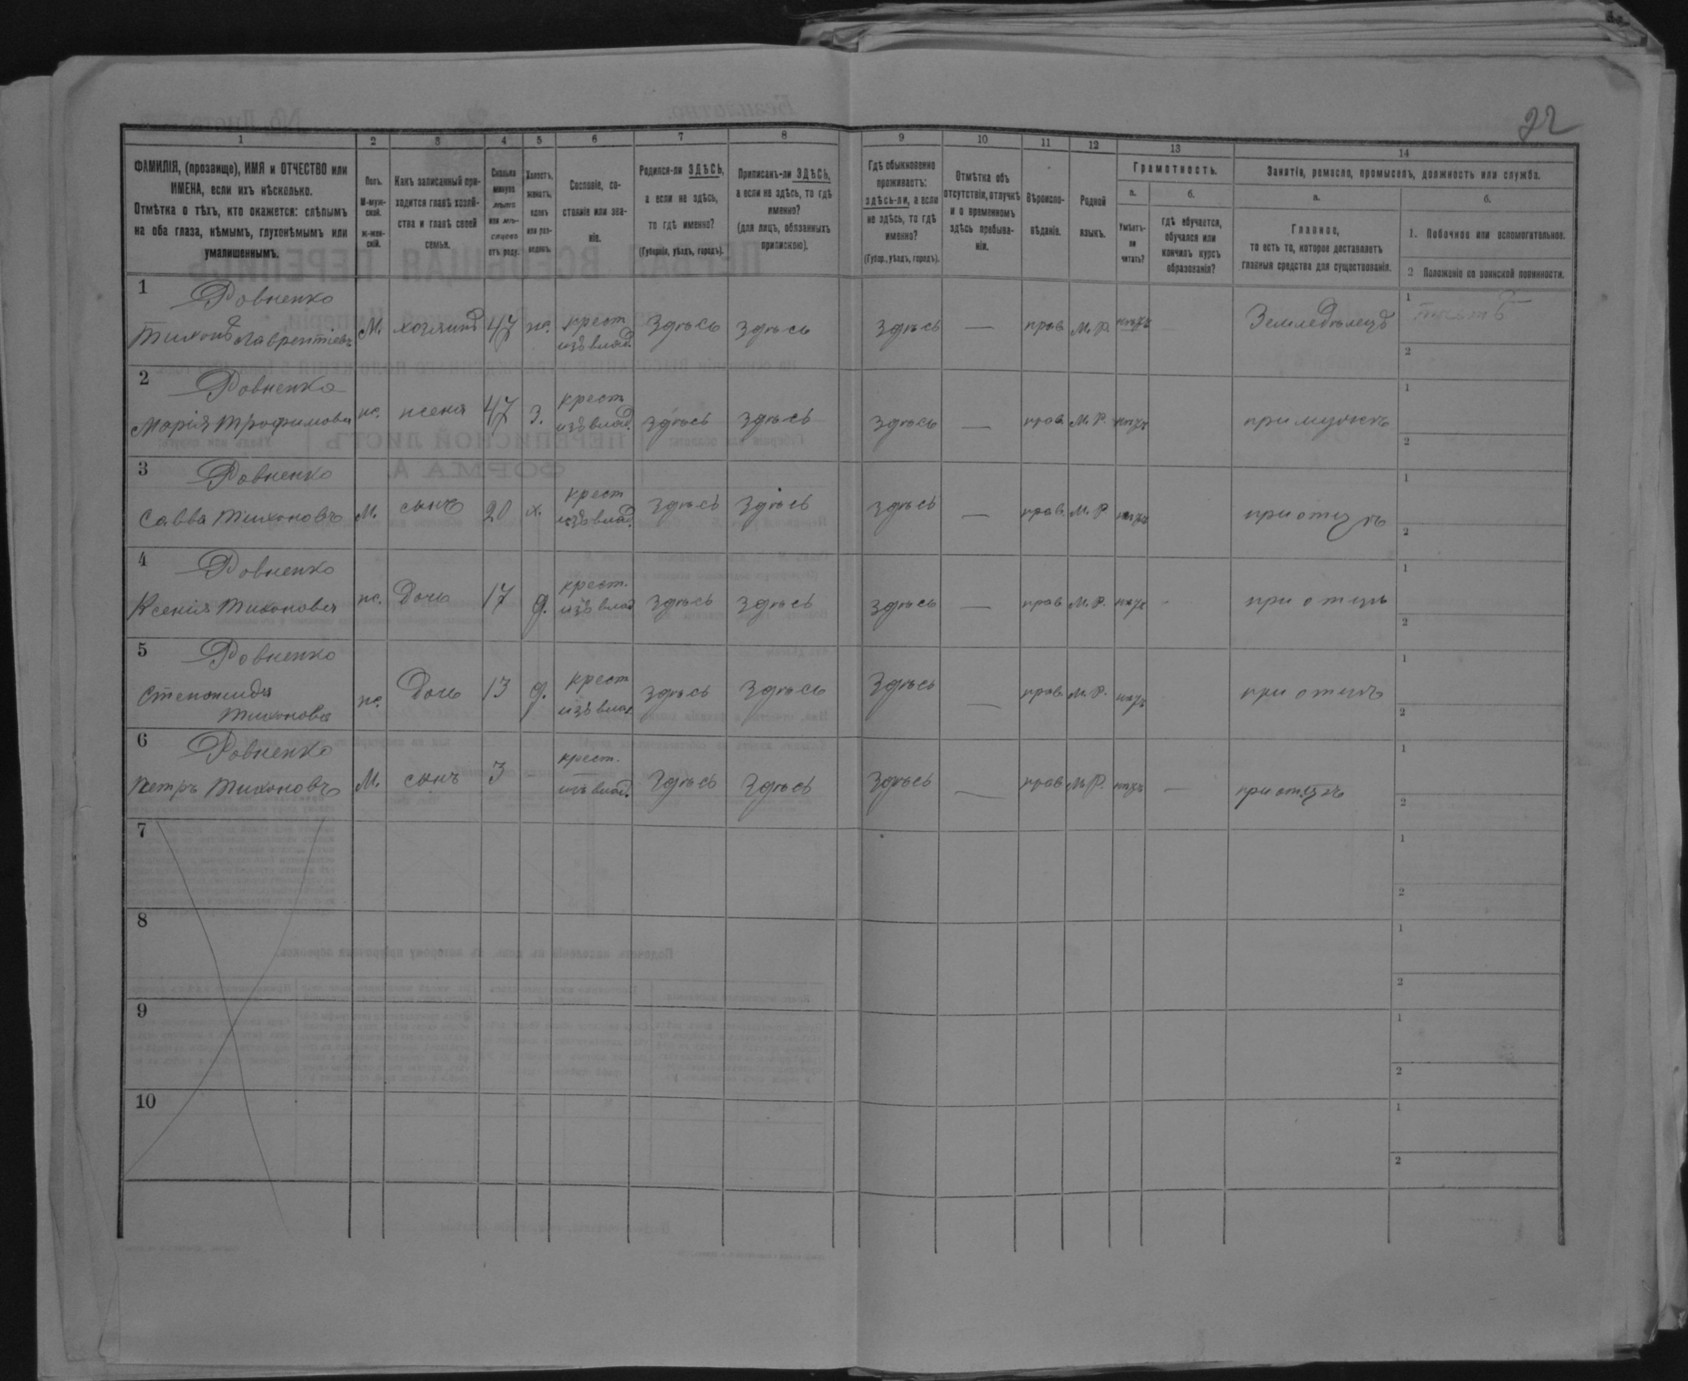 22
1 2 3 4 5 6 7 8 9 10 11 12 13 14
ФАМИЛІЯ, (прозвище), ИМЯ и ОТЧЕСТВО или
ИМЕНА, если ихъ нѣсколько.
Отмѣтка о тѣхъ, кто окажется: слѣпымъ
на оба глаза, нѣмымъ, глухонѣмымъ или
умалишеннымъ.
Полъ.
М-муж-
ской.
ж-жен-
скій.
Какъ записанный при-
ходится главѣ хозяй-
ства и главѣ своей
семьи.
Сколько
минуло
лѣтъ
или мѣ-
сяцевъ
отъ роду.
Холостъ,
женатъ,
вдовъ
или раз-
веденъ.
Сословіе, со-
стояніе или зва-
ніе.
Родился-ли ЗДѢСЬ,
а если не здѣсь,
то гдѣ именно?
(Губернія, уѣздъ, городъ).
Приписанъ-ли ЗДѢСЬ,
а если не здѣсь, то гдѣ
именно?
(для лицъ, обязанныхъ
припискою).
Гдѣ обыкновенно
проживаетъ:
здѣсь-ли, а если
не здѣсь, то гдѣ
именно?
(Губер., уѣздъ, городъ).
Отмѣтка объ
отсутствіи, отлучкѣ
и о временномъ
здѣсь пребыва-
ніи.
Вѣроиспо-
вѣданіе.
Родной
языкъ.
Грамотность.
а.
Умѣетъ-
ли
читать?
б.
гдѣ обучается,
обучался или
кончилъ курсъ
образованія?
Занятіе, ремесло, промыселъ, должность или служба.
а.
Главное,
то есть то, которое доставляетъ
главныя средства для существованія.
б.
1. Побочное или вспомогательное.
2 Положеніе по воинской повинности.
1 Ровненко
Тихонъ Лаврентіевъ М. хозяинъ 47 ж. крест. изъ влад. здѣсь здѣсь здѣсь — прав. М.Р. нѣтъ Земледѣлецъ 1
2
2 Ровненко
Марія Трофимова ж. жена 47 з. крест. изъ влад. здѣсь здѣсь здѣсь — прав. М.Р. нѣтъ при мужѣ 1
2
3 Ровненко
Савва Тихоновъ М. сынъ 20 х. крест. изъ влад. здѣсь здѣсь здѣсь — прав. М.Р. нѣтъ при отцѣ 1
2
4 Ровненко
Ксенія Тихонова ж. Дочь 17 д. крест. изъ влад. здѣсь здѣсь здѣсь — прав. М.Р. нѣтъ при отцѣ 1
2
5 Ровненко
Степанида
Тихонова ж. Дочь 13 д. крест. изъ влад. здѣсь здѣсь здѣсь — прав. М.Р. нѣтъ при отцѣ 1
2
6 Ровненко
Петръ Тихоновъ М. сынъ 3 крест. изъ влад. здѣсь здѣсь здѣсь — прав. М.Р. нѣтъ — при отцѣ 1
2
7 1
2
8 1
2
9 1
2
10 1
2